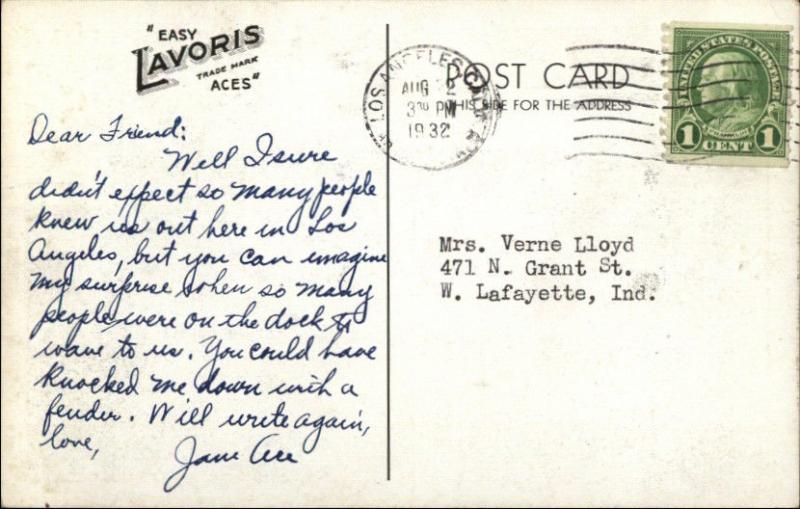 "EASY
LAVORIS
TRADE MARK
ACES"
POST CARD
THIS SIDE FOR THE ADDRESS
LOS ANGELES, CALIF.
AUG 2
3 30 PM
1932
UNITED STATES POSTAGE
FRANKLIN
1 CENT 1
Dear Friend:
Well I sure
didn't expect so many people
knew us out here in Los
Angeles, but you can imagine
my surprise when so many
people were on the dock to
wave to us. You could have
knocked me down with a
fender. Will write again,
love,
Jane Ace
Mrs. Verne Lloyd
471 N. Grant St.
W. Lafayette, Ind.